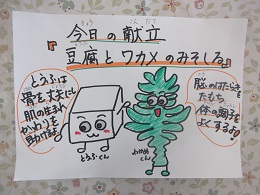 『今日の献立
豆腐とワカメのみそしる』
とうふは
骨を丈夫にし
肌の生まれ
かわりを
助けるよ
脳のはたらきを
たもち
体の調子を
よくするよ！
とうふくん
わかめくん